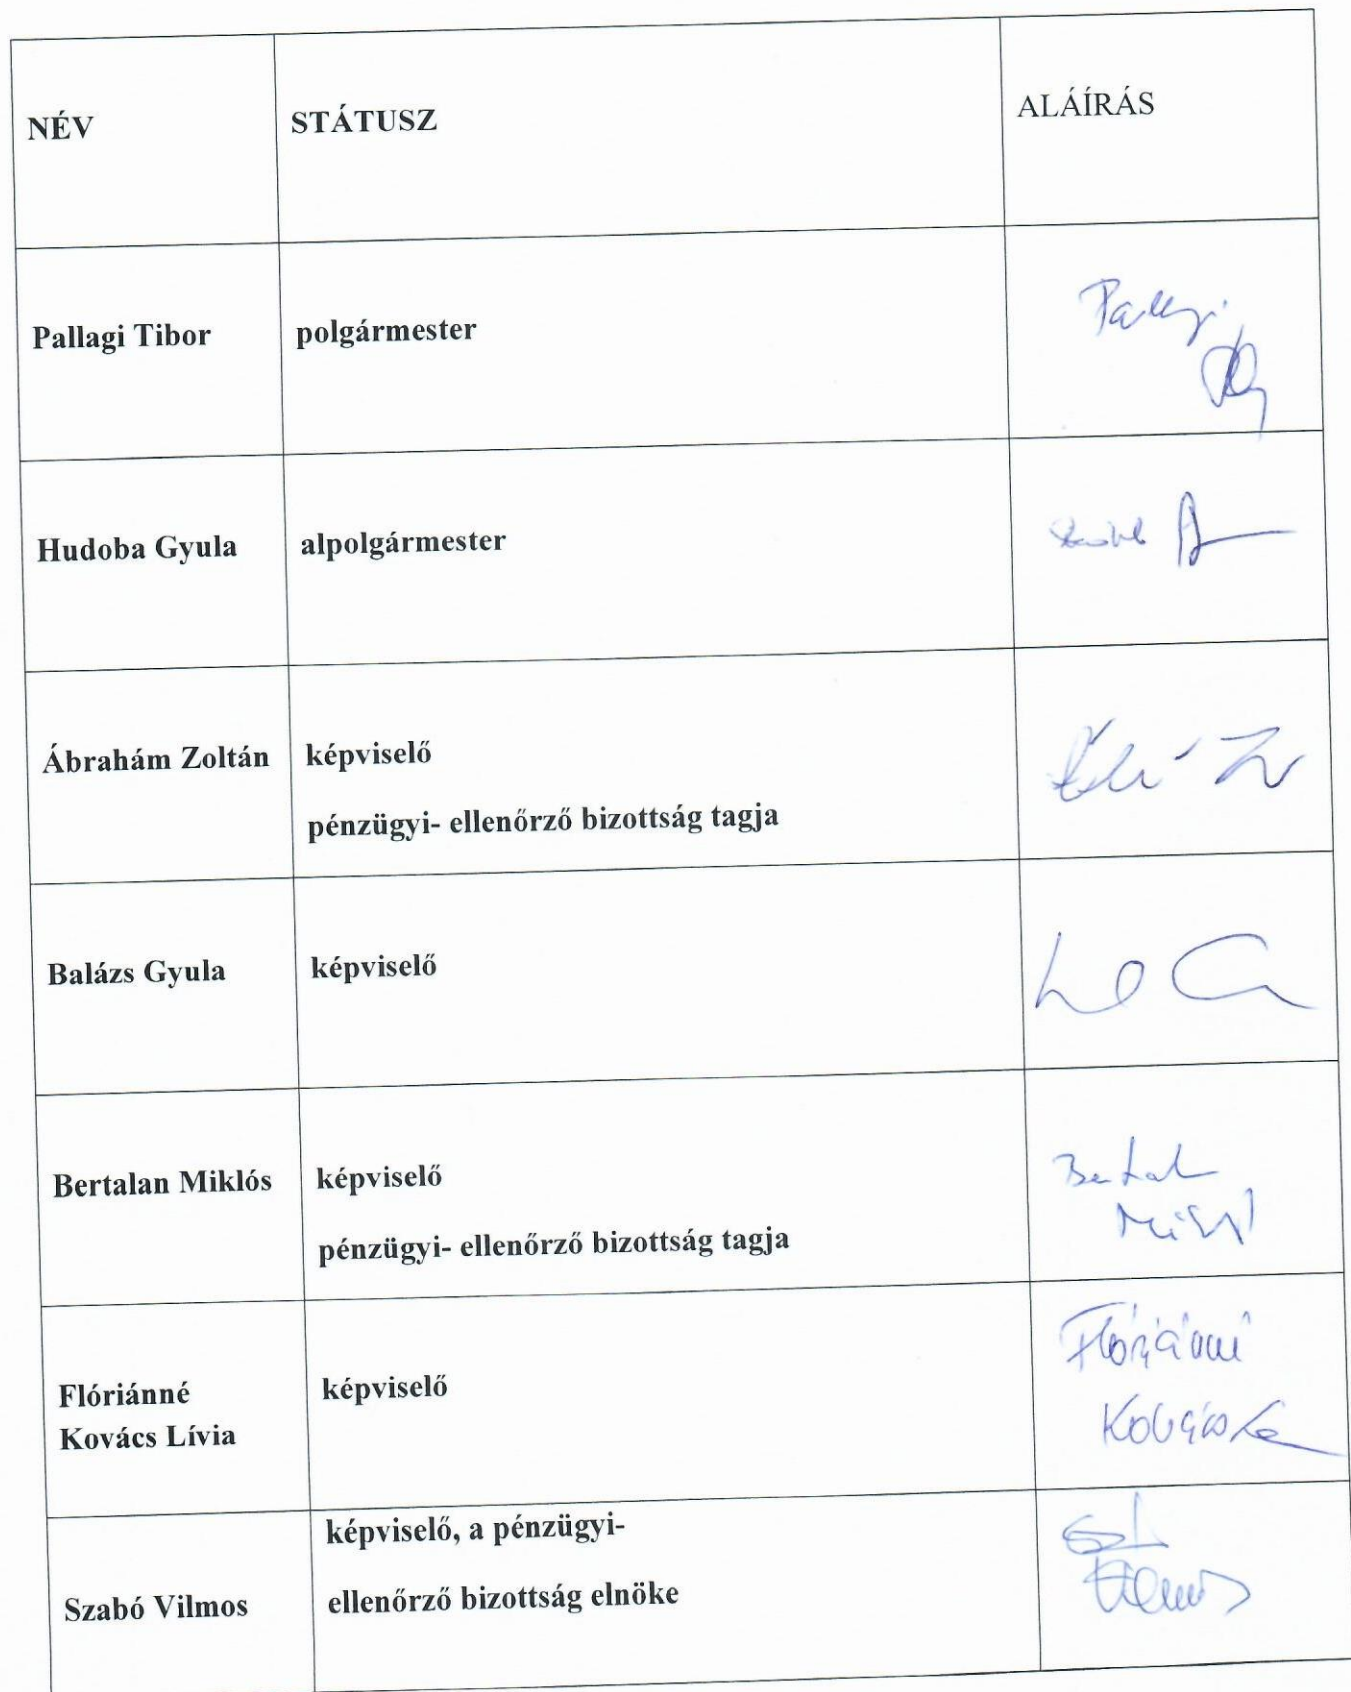 NÉV STÁTUSZ ALÁÍRÁS
Pallagi Tibor polgármester Pallagi
Hudoba Gyula alpolgármester
Ábrahám Zoltán képviselő
pénzügyi- ellenőrző bizottság tagja
Balázs Gyula képviselő
Bertalan Miklós képviselő
pénzügyi- ellenőrző bizottság tagja
Flóriánné
Kovács Lívia
képviselő
Flóriánné
Kovács
képviselő, a pénzügyi-
Szabó Vilmos ellenőrző bizottság elnöke
Vilmos